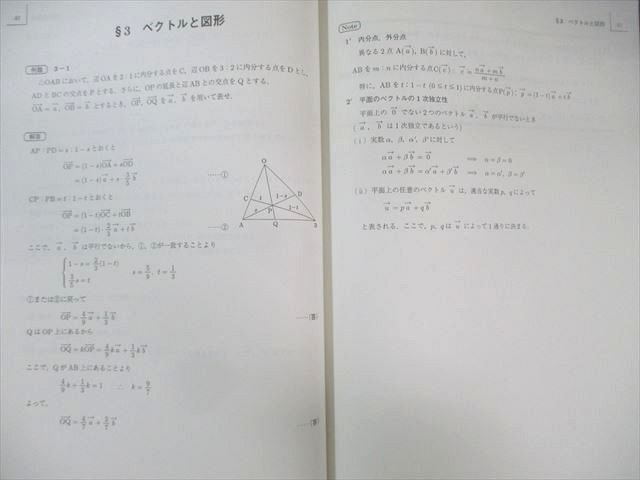 §3 ベクトルと図形
例題 3-1
△OABにおいて，辺OAを2：1に内分する点をC，辺OBを3：2に内分する点をDとし，
ADとBCの交点をPとする。さらに，OPの延長と辺ABとの交点をQとする。
OA＝a，OB＝bとするとき，OP，OQをa，bを用いて表せ。
解答
AP：PD＝s：1－sとおくと
OP＝(1－s)OA＋sOD
＝(1－s)a＋s・3/5 b ……①
CP：PB＝t：1－tとおくと
OP＝(1－t)OC＋tOB
＝(1－t)・2/3 a＋tb ……②
ここで，a，bは平行でないから，①，②が一致することより
1－s＝2/3(1－t)
3/5 s＝t
s＝5/9，t＝1/3
①または②に戻って
OP＝4/9 a＋1/3 b ……(答)
QはOP上にあるから
OQ＝kOP＝4/9 ka＋1/3 kb
ここで，QがAB上にあることより
4/9 k＋1/3 k＝1 ∴ k＝9/7
よって，
OQ＝4/7 a＋3/7 b ……(答)
O
C
t
s
D
1－t
1－s
P
A
Q
Note
§3 ベクトルと図形
1° 内分点，外分点
異なる2点A(a)，B(b)に対して，
ABをm：nに内分する点C(c)：c＝na＋mb/m＋n
特に，ABをt：1－t (0≦t≦1)に内分する点P(p)：p＝(1－t)a＋tb
2° 平面のベクトルの1次独立性
平面上の0でない2つのベクトルa，bが平行でないとき
(a，bは1次独立であるという)
(i) 実数α，β，α′，β′に対して
αa＋βb＝0 ⟹ α＝β＝0
αa＋βb＝α′a＋β′b ⟹ α＝α′，β＝β′
(ii) 平面上の任意のベクトルuは，適当な実数p，qによって
u＝pa＋qb
と表される．ここで，p，qはuによって1通りに決まる．